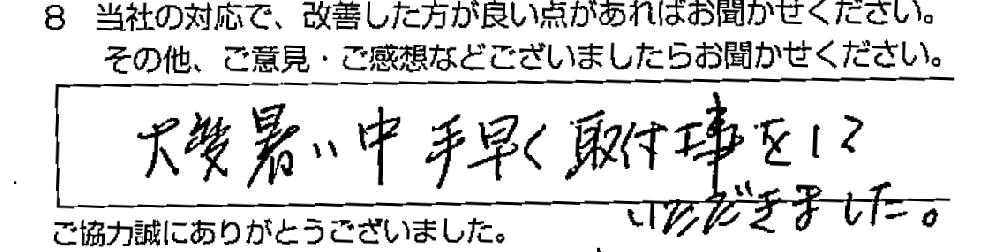 8 当社の対応で、改善した方が良い点があればお聞かせください。
その他、ご意見・ご感想などございましたらお聞かせください。
大変暑い中手早く取付工事をして
いただきました。
ご協力誠にありがとうございました。